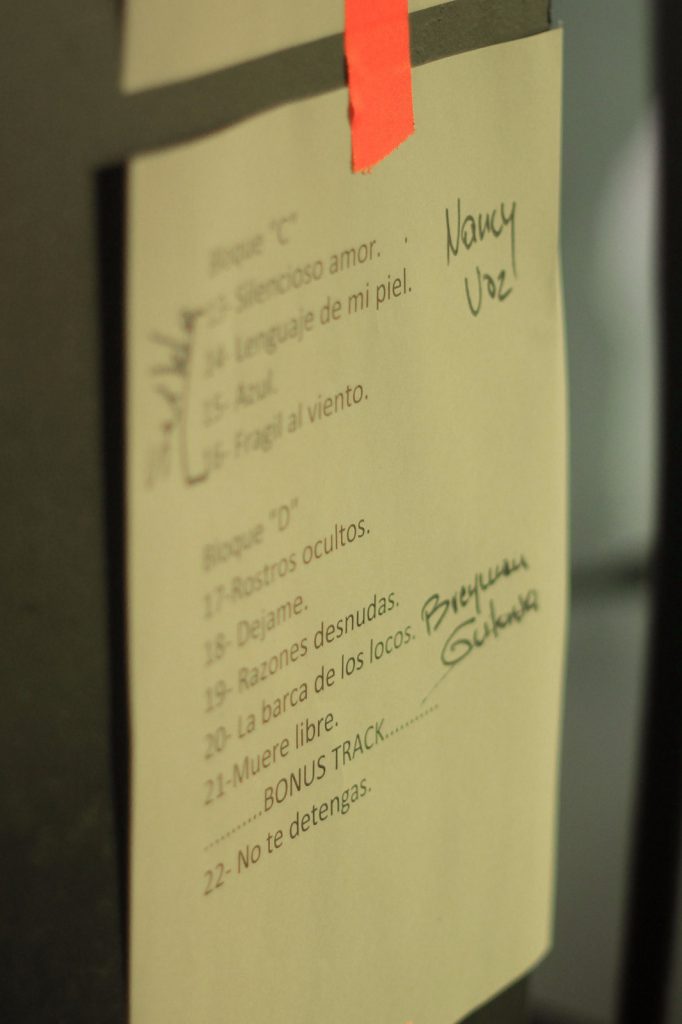 Bloque "C"
13- Silencioso amor.
Nancy
Voz
14- Lenguaje de mi piel.
15- Azul.
16- Fragil al viento.
Bloque "D"
17-Rostros ocultos.
18- Dejame.
19- Razones desnudas.
20- La barca de los locos.
21-Muere libre.
...........BONUS TRACK..........
22- No te detengas.